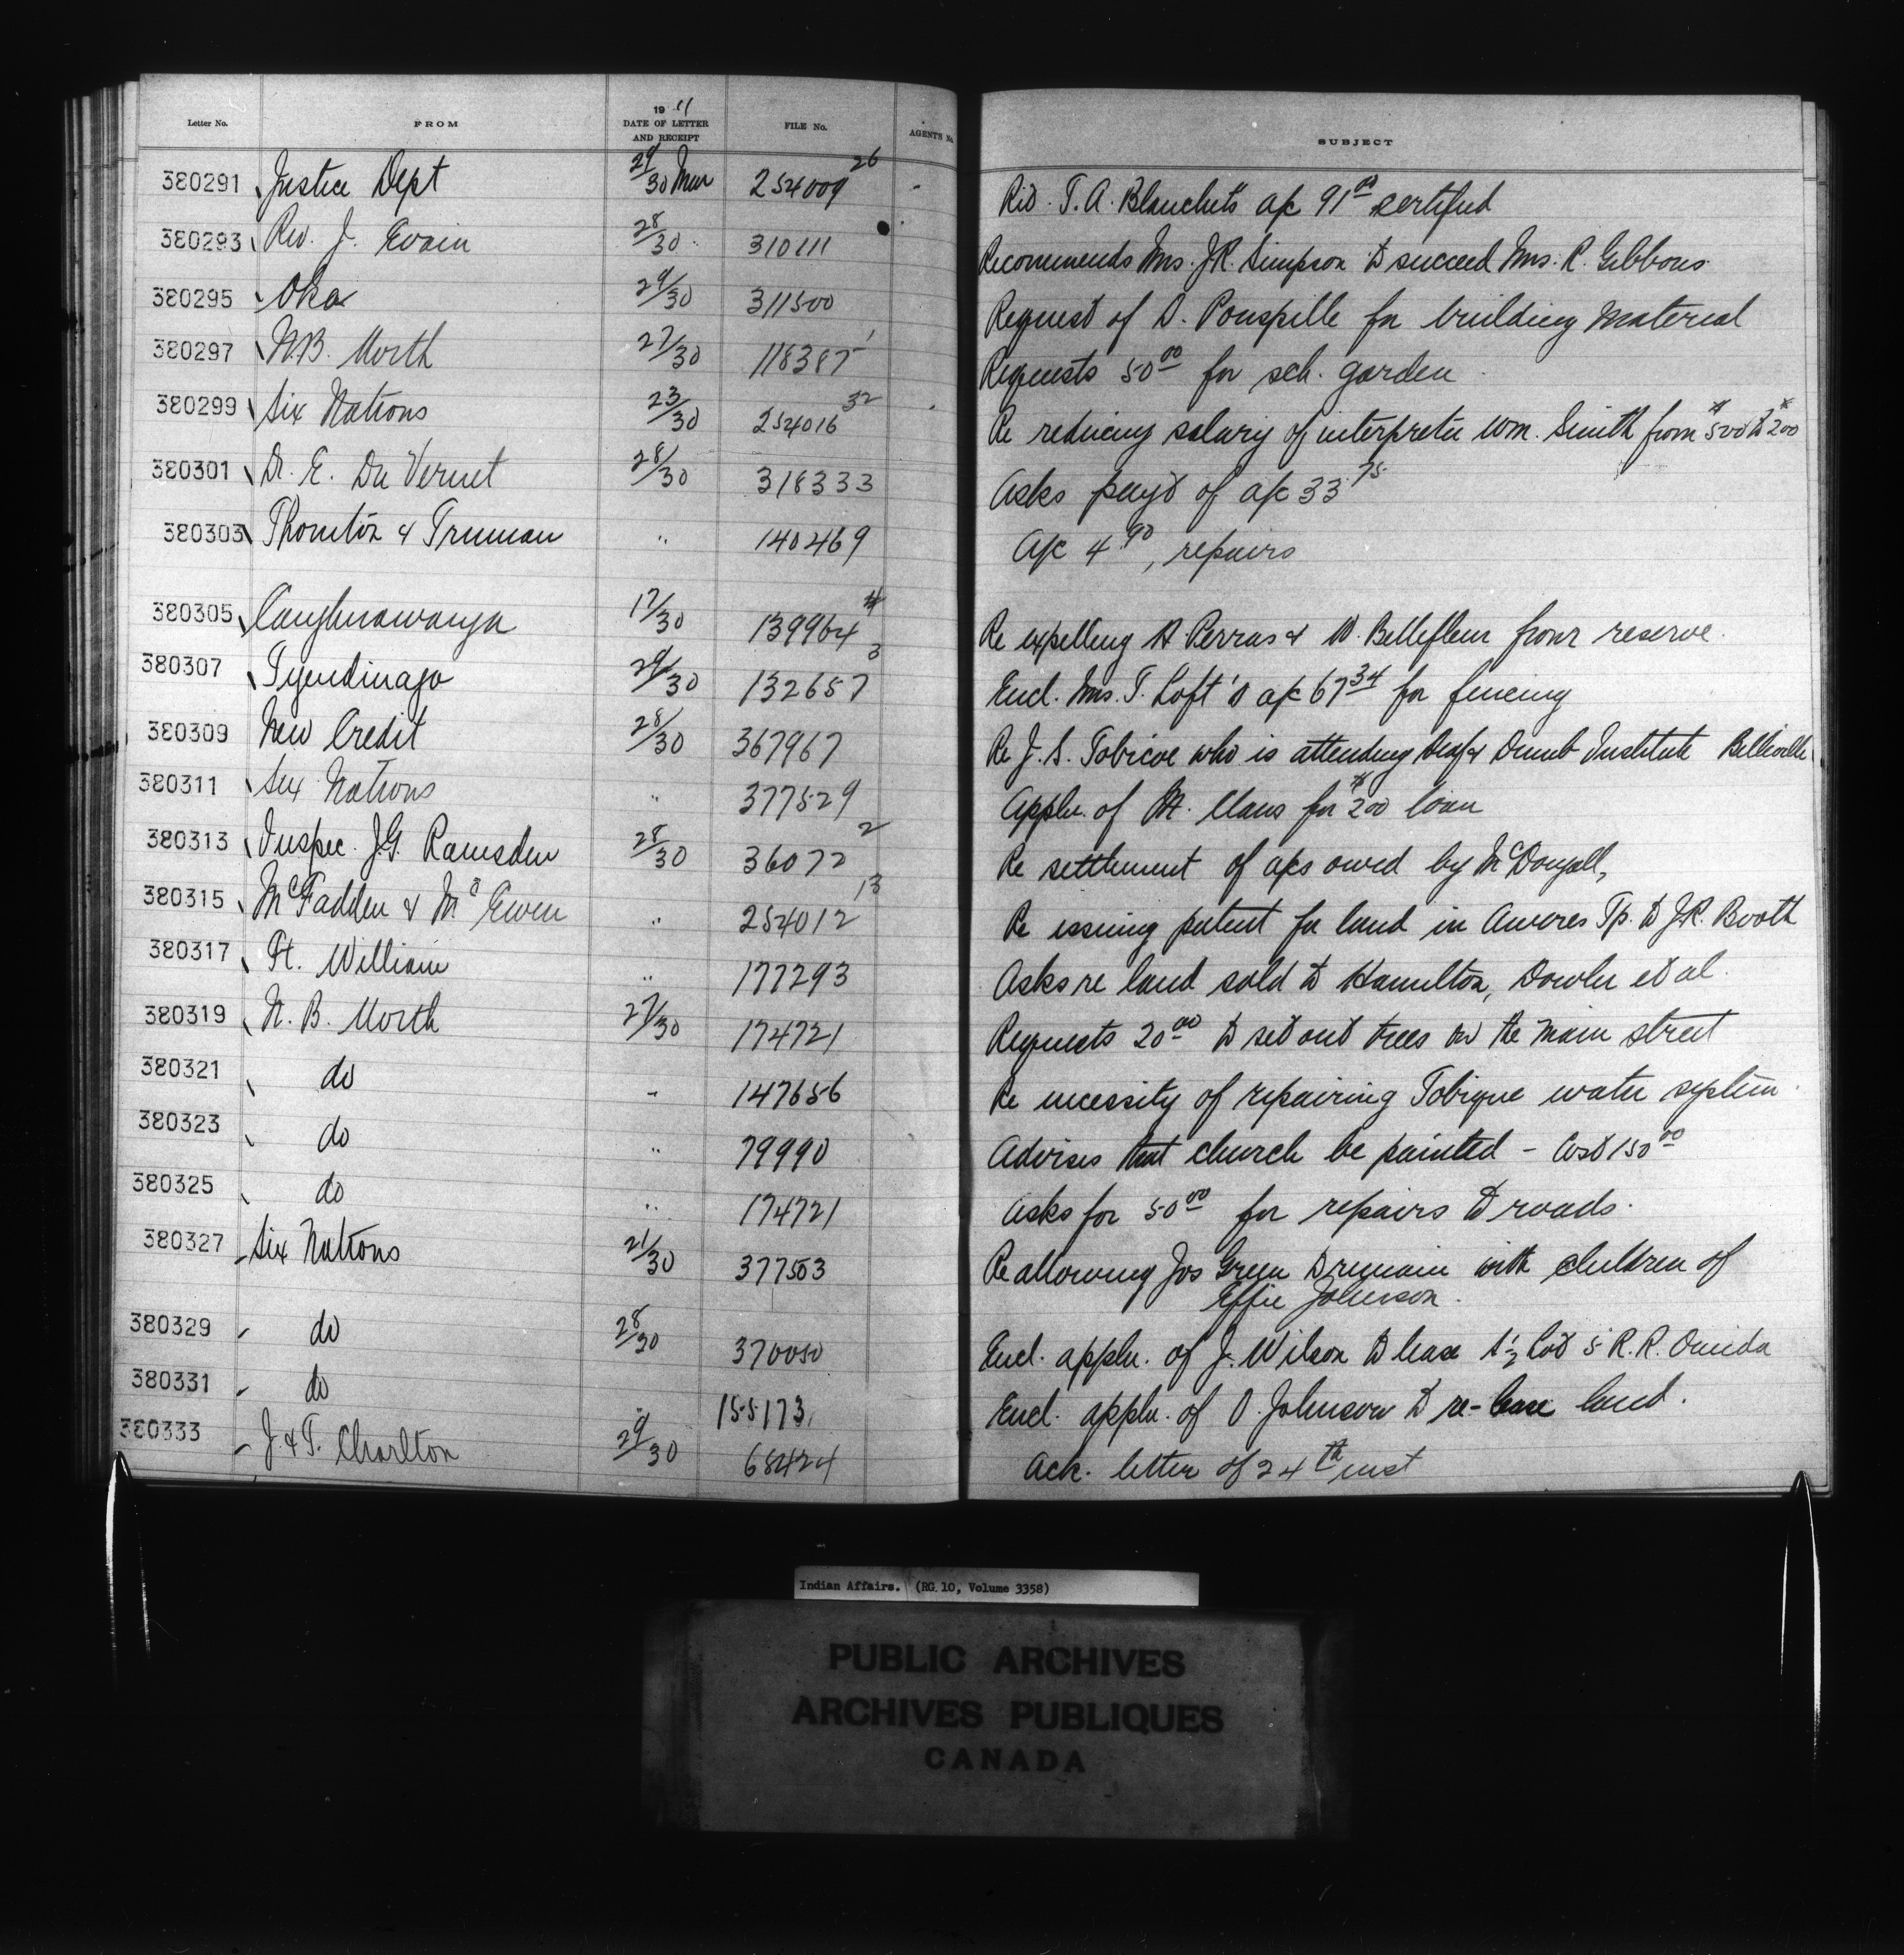 Letter No. FROM 19 11 DATE OF LETTER AND RECEIPT FILE No. AGENTS No. SUBJECT
380291 Justice Dept 29/30 Mar 254009 26 T. A. Blanchet's a/c 91 00 certified
380293 Rev. J. 28/30 310111 Recommends Mrs. J.R. Simpson to succeed Mrs. R. Gibbons
380295 Oka 29/30 311500 Request of D. for building material
380297 N.B. North 27/30 118387 1 Requests 50 00 for sch. garden
380299 Six Nations 23/30 254016 32 Re reducing salary of interpreter Wm. Smith from $500 to $200
380301 Dr. E. Du Vernet 28/30 318333 Asks payt of a/c 33 75
380303 Thornton & Truman " 140469 A/c 4 90, repairs
380305 Caughnawauga 17/30 139964 4 Re expelling A Perras & W. Bellefleur from reserve.
380307 Tyendinaga 29/30 132657 3 Encl. Mrs. T. Loft's a/c 67 34 for fencing
380309 New Credit 28/30 367967 Re J. S. Tobicoe who is attending Deaf & Dumb Institute Belleville
380311 Six Nations " 377529 Appln. of M. Claus for $200 loan
380313 Inspec. J.G. Ramsden 28/30 36072 2 Re settlement of a/cs owed by McDougall,
380315 McFadden & McEwen " 254012 13 Re issuing patent for land in Aweres Tp. to J.R. Booth
380317 Ft. William " 177293 Asks re land sold to Hamilton, Dowler et al.
380319 N. B. North 27/30 174721 Requests 20 00 to set out trees on the main street
380321 do " 147656 Re necessity of repairing Tobique water system.
380323 do " 79990 Advises that church be painted - Cost 150 00
380325 do " 174721 Asks for 50 00 for repairs to roads.
380327 Six Nations 21/30 377503 Re allowing Jos Green to remain with children of
Effie Johnson.
380329 do 28/30 370050 Encl. appln. of J. Wilson to lease ½ Lot 5 R.R. Oneida
380331 do " 155173 Encl. appln. of O. Johnson to re-lease land.
380333 J. & T. Charlton 29/30 68424 Ack. letter of 24th inst
Indian Affairs. (RG 10, Volume 3358)
PUBLIC ARCHIVES
ARCHIVES PUBLIQUES
CANADA